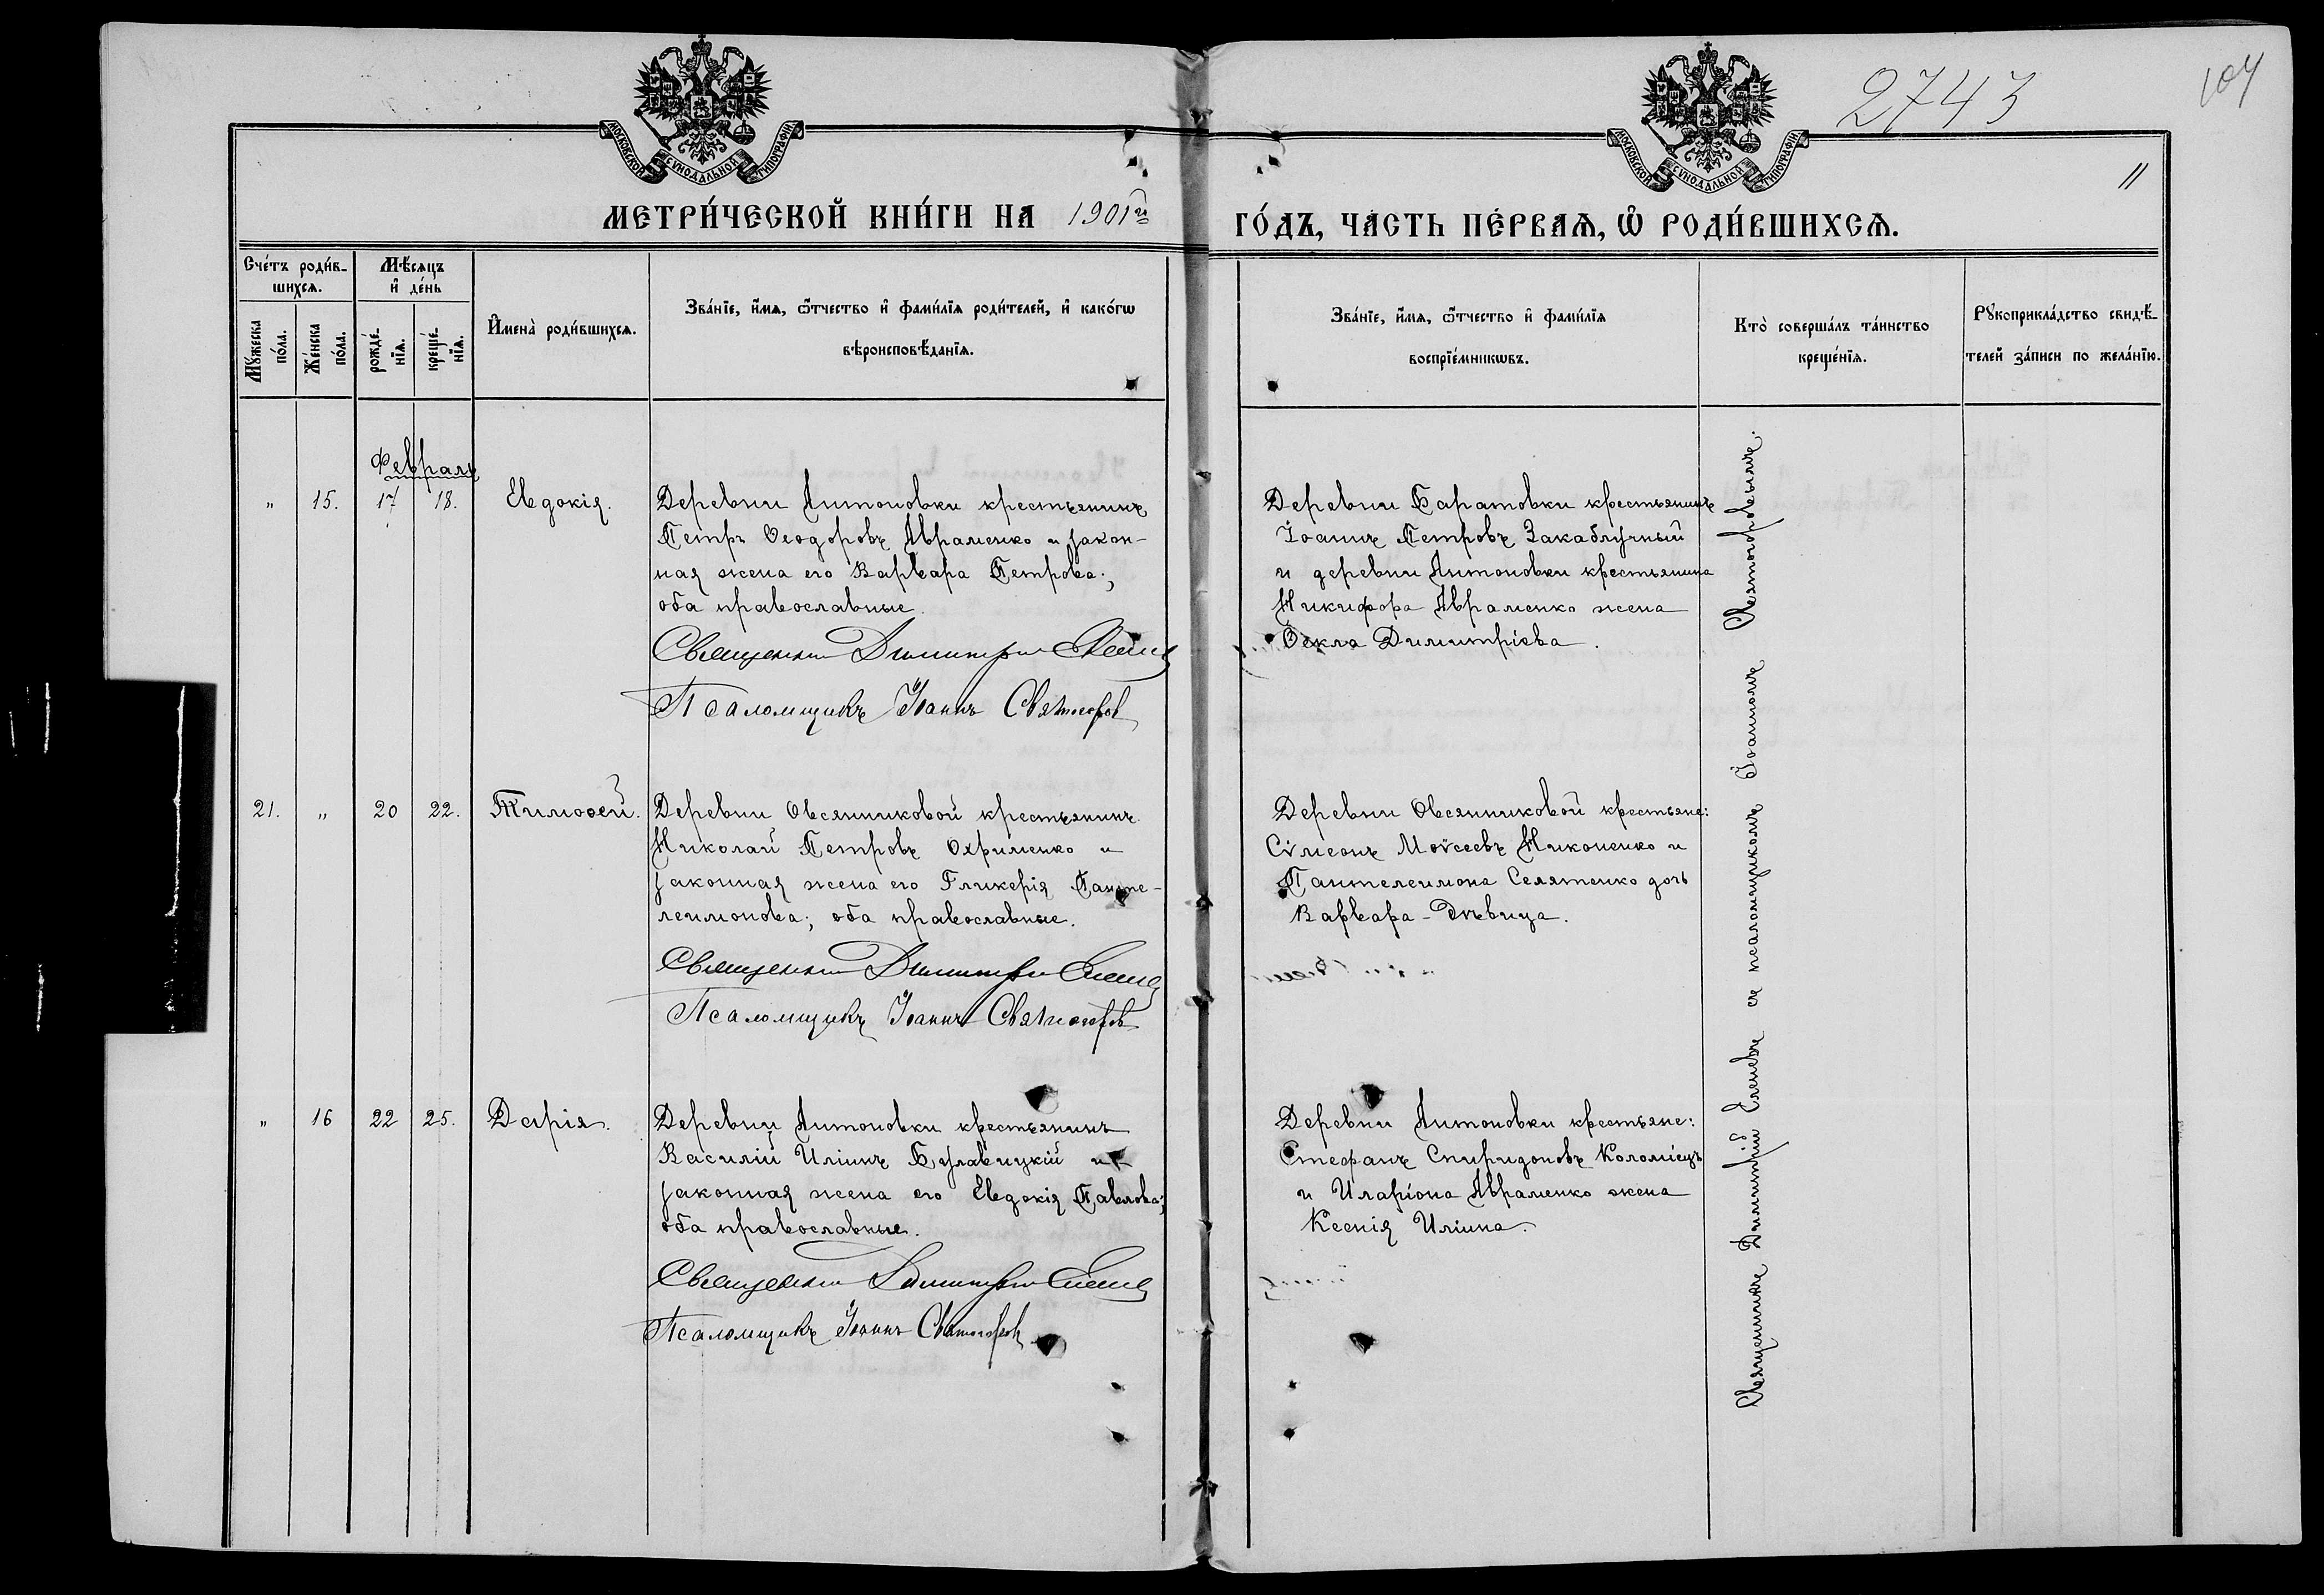 2743
104
11
МОСКОВСКОЙ СѴНОДАЛЬНОЙ ТИПОГРАФІИ
МОСКОВСКОЙ СѴНОДАЛЬНОЙ ТИПОГРАФІИ
МЕТРИ́ЧЕСКОЙ КНИ́ГИ НА 1901й
ГО́ДЪ, ЧА́СТЬ ПЕ́РВАѦ, Ѿ РОДИ́ВШИХСѦ.
Сче́тъ роди́в-
шихсѧ.
Мѣ́сѧцъ
и҆ де́нь
Мꙋ́жеска
по́ла.
Же́нска
по́ла.
рожде́-
нїѧ.
креще́-
нїѧ.
И҆мена̀ роди́вшихсѧ.
Зва́нїе, и҆́мѧ, ѻ҆́тчество и҆ фами́лїѧ роди́телей, и҆ како́гѡ
вѣроисповѣ́данїѧ.
Зва́нїе, и҆́мѧ, ѻ҆́тчество и҆ фами́лїѧ
воспрїе́мникѡвъ.
Кто̀ соверша́лъ та́инство
креще́нїѧ.
Рꙋкоприкла́дство свидѣ́-
телей за́писи по жела́нїю.
Февраль
" 15. 17 18. Евдокія.
Деревни Антоновки крестьянинъ
Петръ Ѳеодоровъ Авраменко и закон-
ная жена его Варвара Петрова;
оба православные.
Священникъ Димитрій
Псаломщикъ Іоаннъ Святогоровъ
Деревни Баратовки крестьянинъ
Іоаннъ Петровъ Закаблучный
и деревни Антоновки крестьянина
Никифора Авраменко жена
Ѳекла Димитріева.
21. " 20 22. Тимоѳей.
Деревни Овсянниковой крестьянинъ
Николай Петровъ Охрименко и
законная жена его Гликерія Панте-
леимонова; оба православные.
Священникъ Димитрій
Псаломщикъ Іоаннъ Святогоровъ
Деревни Овсянниковой крестьяне:
Сѵмеонъ Моѵсеевъ Никоненко и
Пантелеимона Селятенко дочь
Варвара - дѣвица.
" 16 22 25. Дарія.
Деревни Антоновки крестьянинъ
Василій Иліинъ Булавицкій и
законная жена его Евдокія Павлова;
оба православные.
Священникъ Димитрій
Псаломщикъ Іоаннъ Святогоровъ
Деревни Антоновки крестьяне:
Стефанъ Спиридоновъ Коломіецъ
и Иларіона Авраменко жена
Ксенія Иліина.
Священникъ Димитрій Еленевъ съ псаломщикомъ Іоанномъ Святогоровымъ.